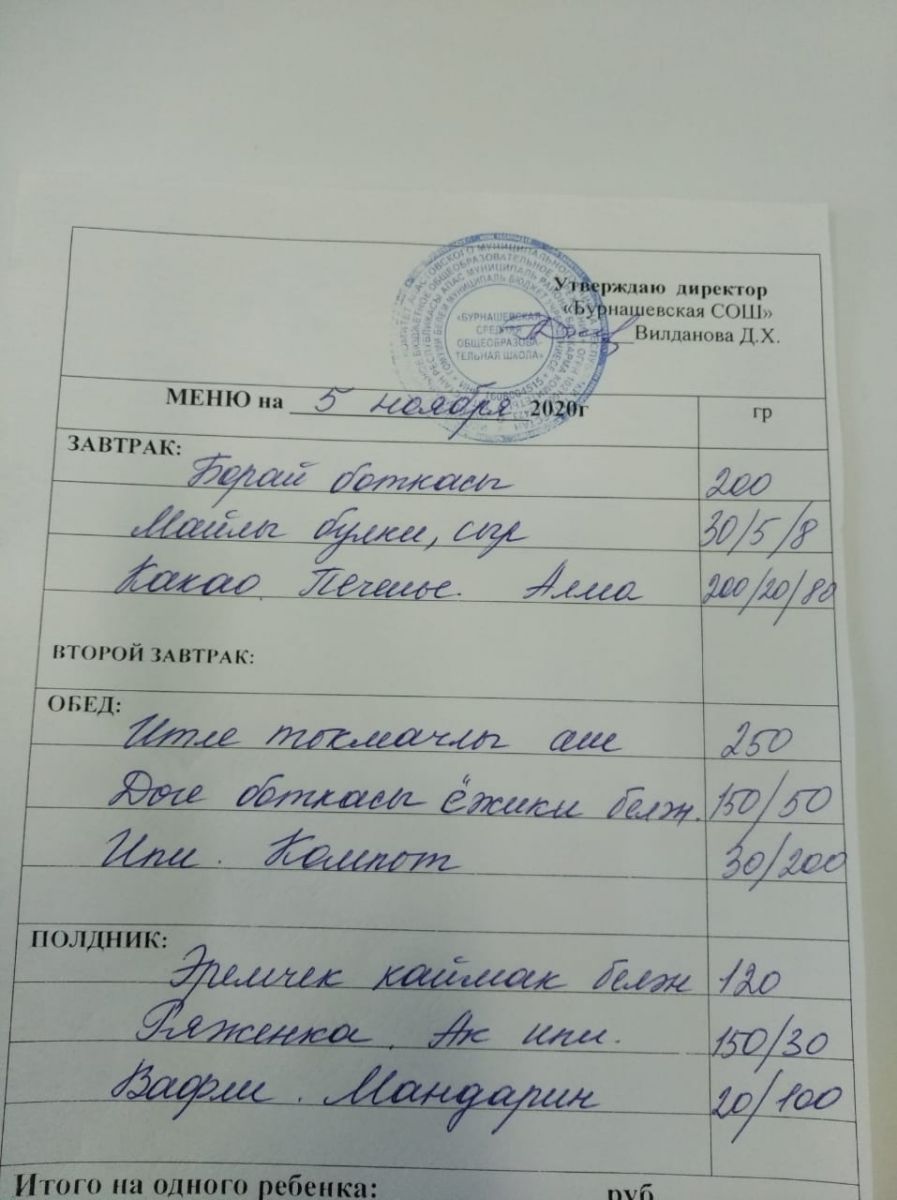 Утверждаю директор
«Бурнашевская СОШ»
Вилданова Д.Х.
«БУРНАШЕВСКАЯ
СРЕДНЯЯ
ОБЩЕОБРАЗОВА-
ТЕЛЬНАЯ ШКОЛА»
МЕНЮ на 5 ноября 2020г гр
ЗАВТРАК:
Борай боткасы 200
Майлы булки, сыр 30/5/8
Какао. Печенье. Алма 200/20/80
ВТОРОЙ ЗАВТРАК:
ОБЕД:
Итле токмачлы аш 250
Доге боткасы ёжики белән. 150/50
Ипи. Компот 30/200
ПОЛДНИК:
Эремчек каймак белән 120
Ряженка. Ак ипи. 150/30
Вафли. Мандарин 20/100
Итого на одного ребенка: руб